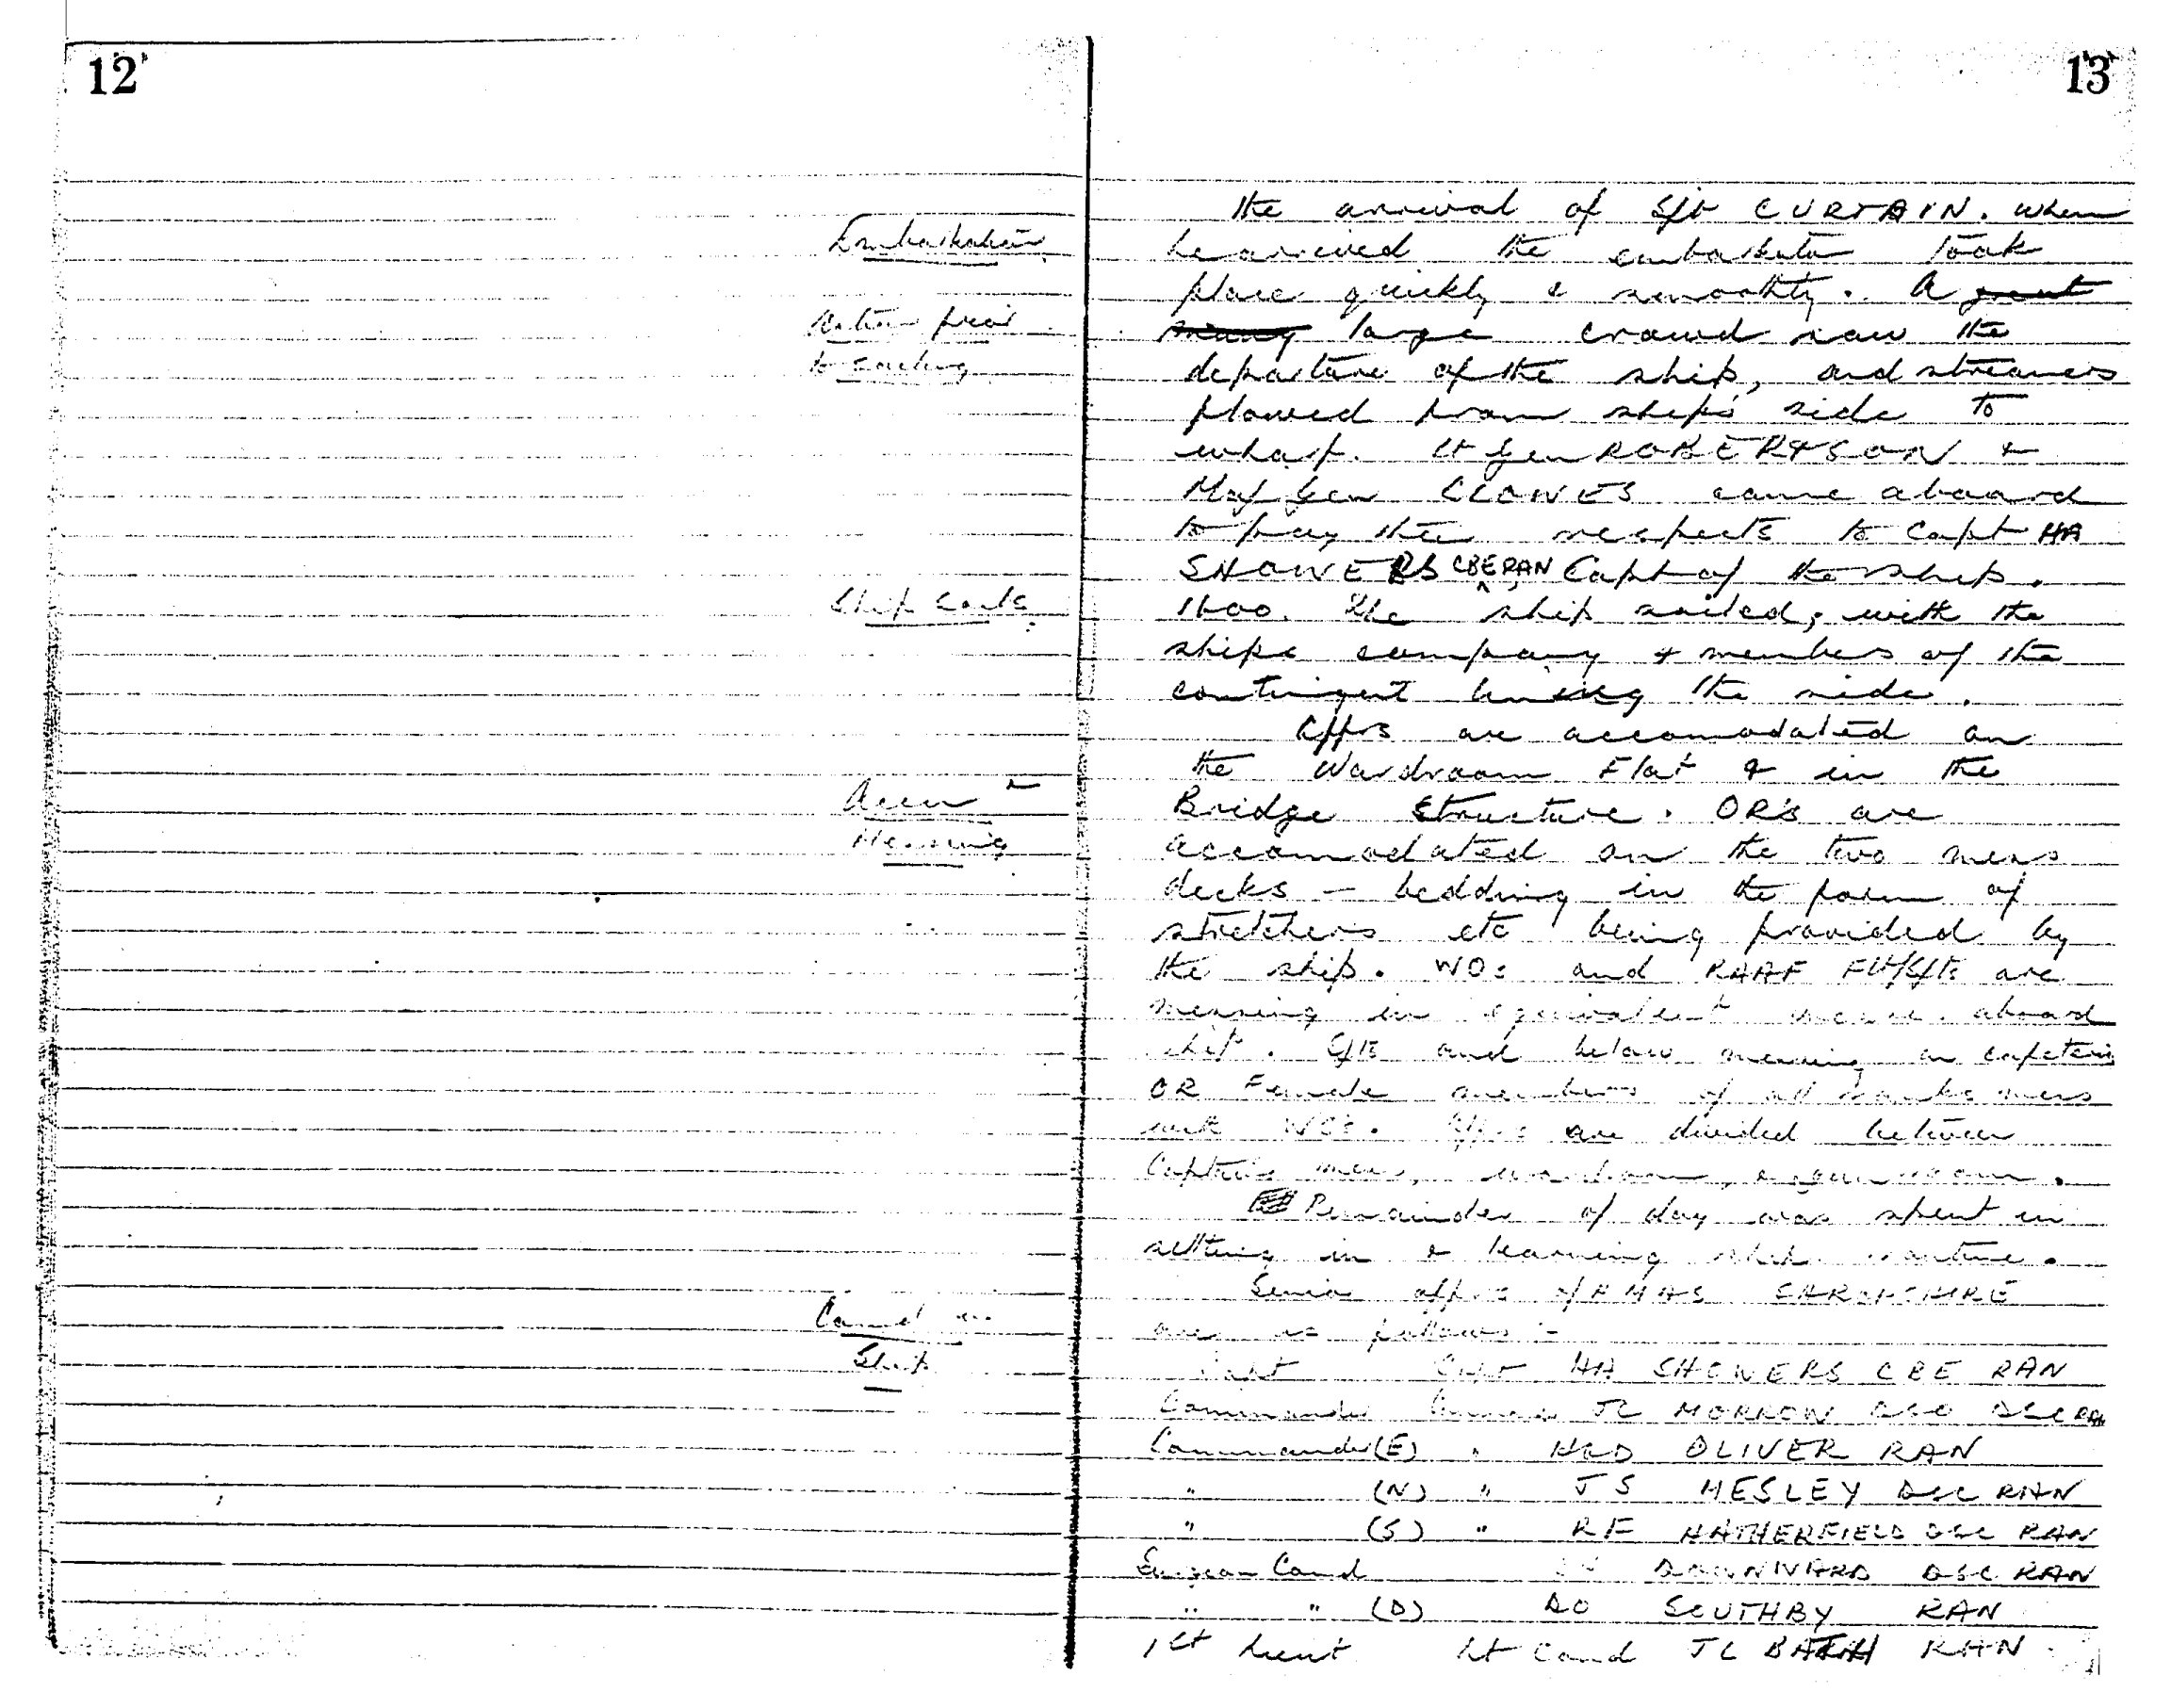 12
Embarkation
Action prior
to sailing
Ship Sails
Accn &
Messing
Comd
Ship
13
the arrival of S/Lt CURTAIN. When
he arrived the embarkation took
place quickly & smoothly. A great
many large crowd saw the
departure of the ship, and streamers
flowed from ship's side to
wharf. Lt Gen ROBERTSON &
Maj Gen CLOWES came aboard
to pay their respects to Capt HA
SHOWERS CBE RAN, Capt of the ship.
1600. The ship sailed, with the
ships company & members of the
contingent lining the side.
Offrs are accomodated on
the Wardroom Flat & in the
Bridge Structure. OR's are
accomodated on the two mess
decks - bedding in the form of
stretchers etc being provided by
the ship. WOs and RAAF Flt/Sgts are
messing in equivalent messes aboard
ship. Sgts and below messing in cafeteria
OR Female members of all ranks mess
with WO's. Offrs are divided between
Captain's mess, wardroom, & gunroom.
Remainder of day was spent in
settling in & learning ship routine.
Senior offrs of HMAS SHROPSHIRE
are as follows :-
Capt Capt HA SHOWERS CBE RAN
Commander Comdr JC MORROW DSO DSC RAN
Commander (E) " HCD OLIVER RAN
" (N) " JS MESLEY DSC RAN
" (S) " RF HATHERFIELD DSC RAN
Surgeon Comd DOWNWARD DSC RAN
" " (D) DO SOUTHBY RAN
1st Lieut Lt Comd JL BATH RAN